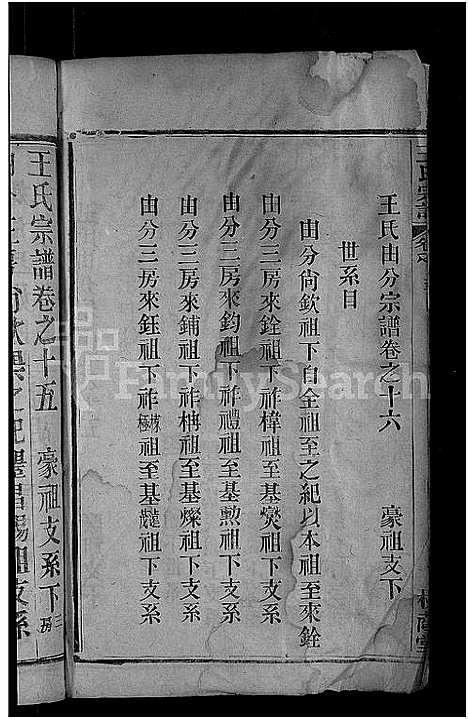 王氏由分宗譜卷之十六 豪祖支下
世系目
由分尙欽祖下自全祖至之紀以本祖至來銓
由分三房來銓祖下祚樟祖至基熒祖下支系
由分三房來鈞祖下祚禮祖至基勲祖下支系
由分三房來鋪祖下祚栴祖至基燦祖下支系
由分三房來鈺祖下祚祖至基祖下支系
王氏宗譜卷之十五 豪祖支系下三房
FamilySearch